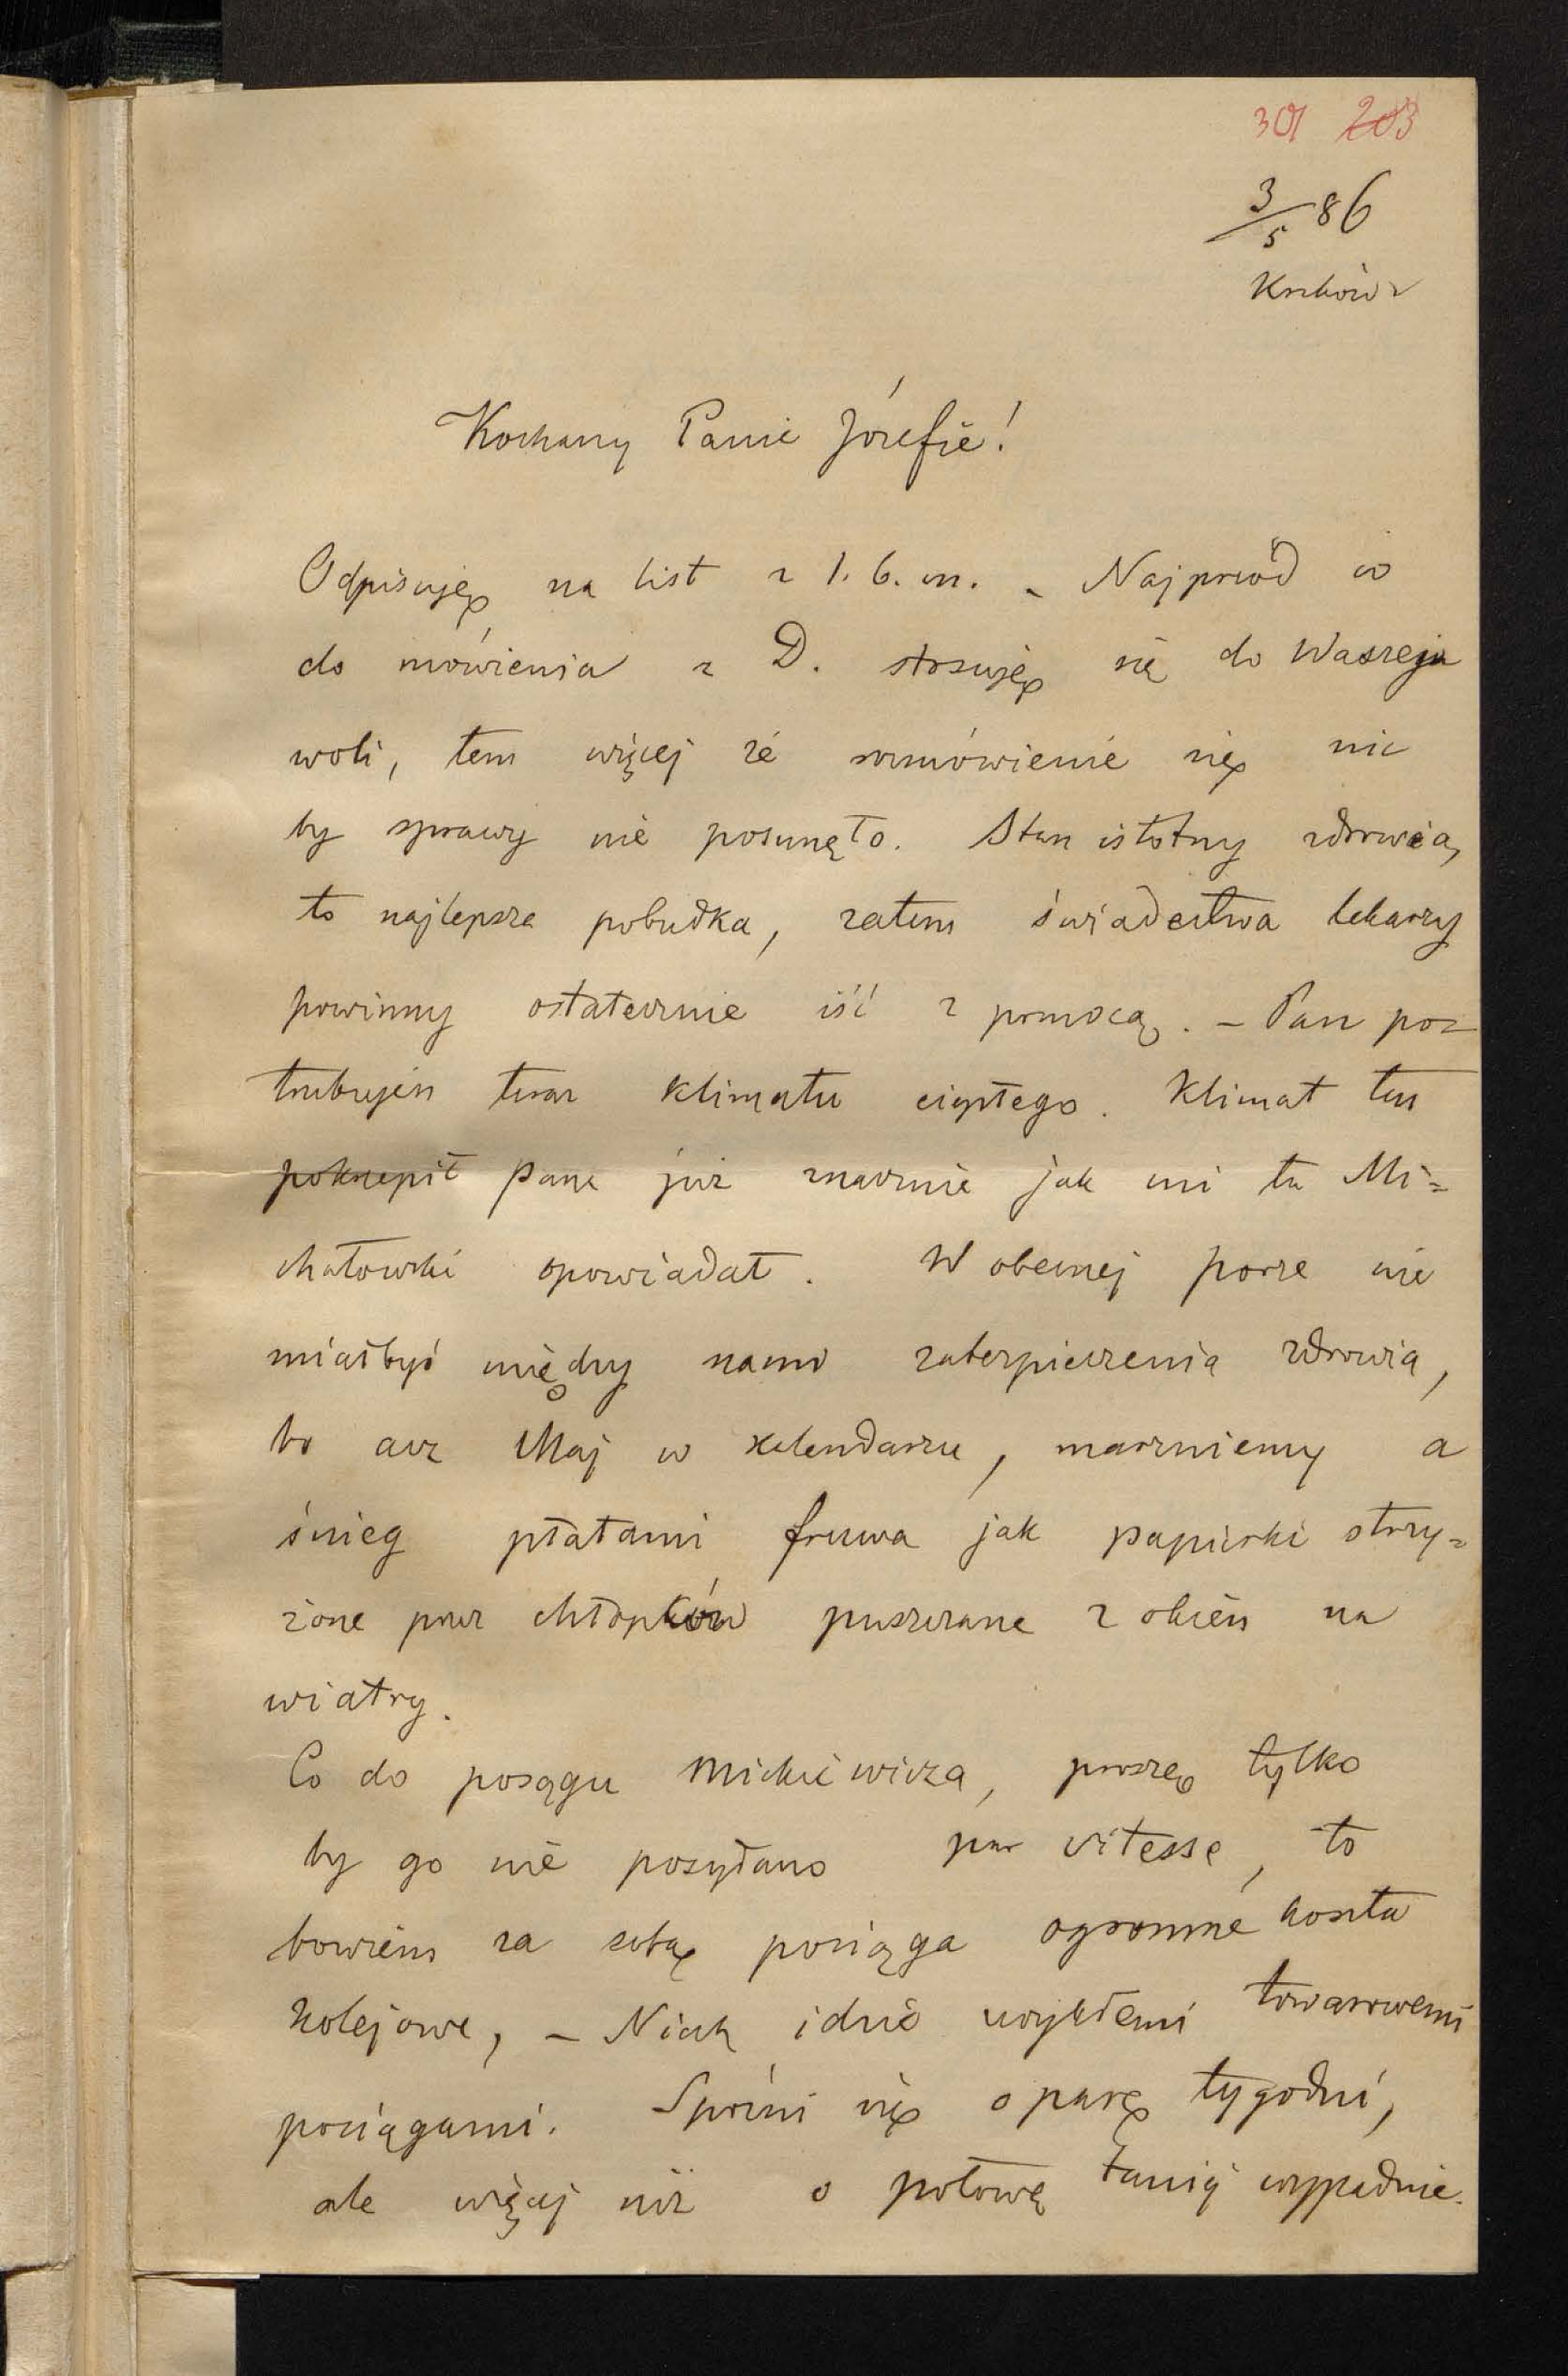 301 203
3/5 86
Kraków
Kochany Panie Józefie!
Odpisuję na list z 1. b. m. – Najprzód co
do mówienia z D. stosuję się do Waszej
woli, tem więcej że rozmówienie się nic
by sprawy nie posunęło. Stan istotny zdrowia,
to najlepsza pobudka, zatem świadectwa lekarzy
powinny ostatecznie iść z pomocą. – Pan po=
trzebujesz teraz klimatu ciepłego. Klimat ten
pokrzepił Pana już znacznie jak mi tu Mi=
chałowski opowiadał. W obecnej porze nie
miałbyś między nami zabezpieczenia zdrowia,
bo acz Maj w kalendarzu, marzniemy a
śnieg płatami fruwa jak papierki strzy=
żone przez chłopców puszczane z okien na
wiatry.
Co do posągu Mickiewicza, proszę tylko
by go nie posyłano par vitesse, to
bowiem za sobą pociąga ogromne koszta
kolejowe, – Niech idzie zwykłemi towarowemi
pociągami. Spóźni się o parę tygodni,
ale więcej niż o połowę taniej wypadnie.